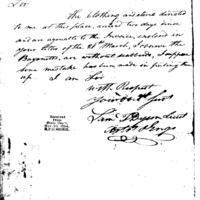 Sir
The Clothing and stores directed
to me at this place, arrived two days since
and are agreeable to the Invoices, enclosed in
your letter of the 8th March, I observe the
Bayonetts, are without scabbards, I suppose
some mistake has been made in putting them
up. I am Sir
with Respect
your Ob. St.
Saml T Dyson Lieut